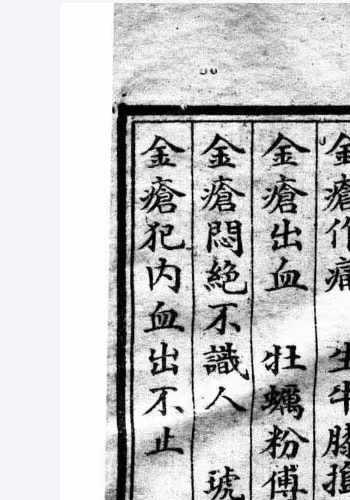 金瘡作痛　生牛膝搗
金瘡出血　牡蠣粉傅
金瘡悶絶不識人　琥
金瘡犯内血出不止